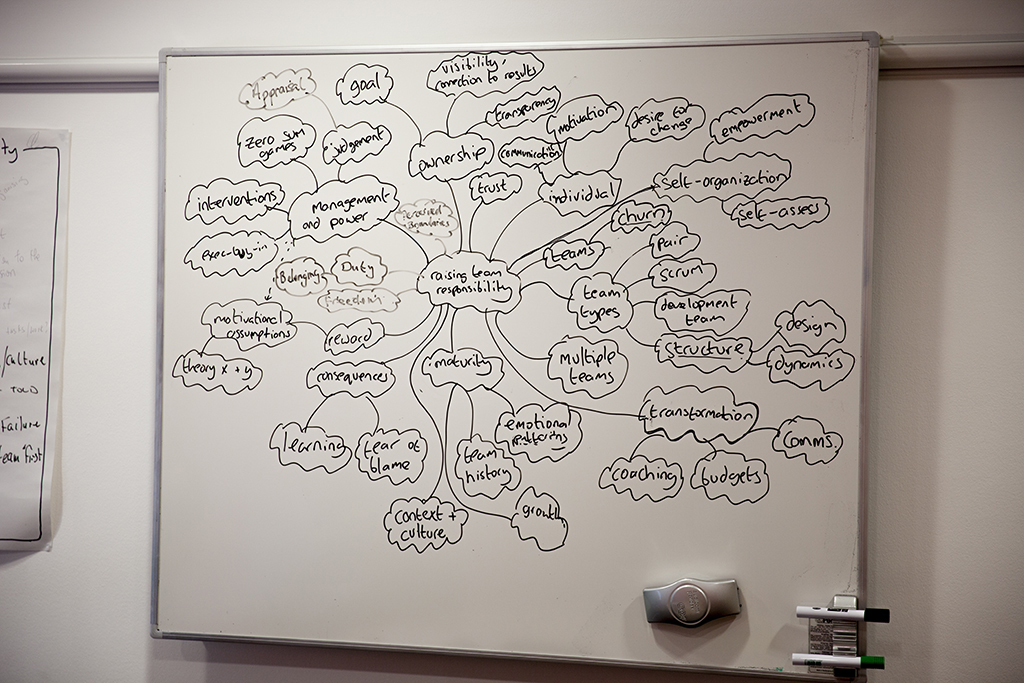 Appraisal
goal
visibility,
connection to results
zero sum
games
judgement
ownership
transparency
communication
motivation
desire to
change
empowerment
interventions
management
and power
trust
individual
self-organization
self-assess
exec-buy-in
churn
teams
pair
scrum
Belonging
Duty
Freedom
raising team
responsibility
team
types
development
team
motivational
assumptions
reward
structure
design
dynamics
theory x + y
consequences
maturity
multiple
teams
transformation
comms.
learning
fear of
blame
emotional
team
history
coaching
budgets
context +
culture
growth
ty
to the
/culture
TOLD
Failure
team first